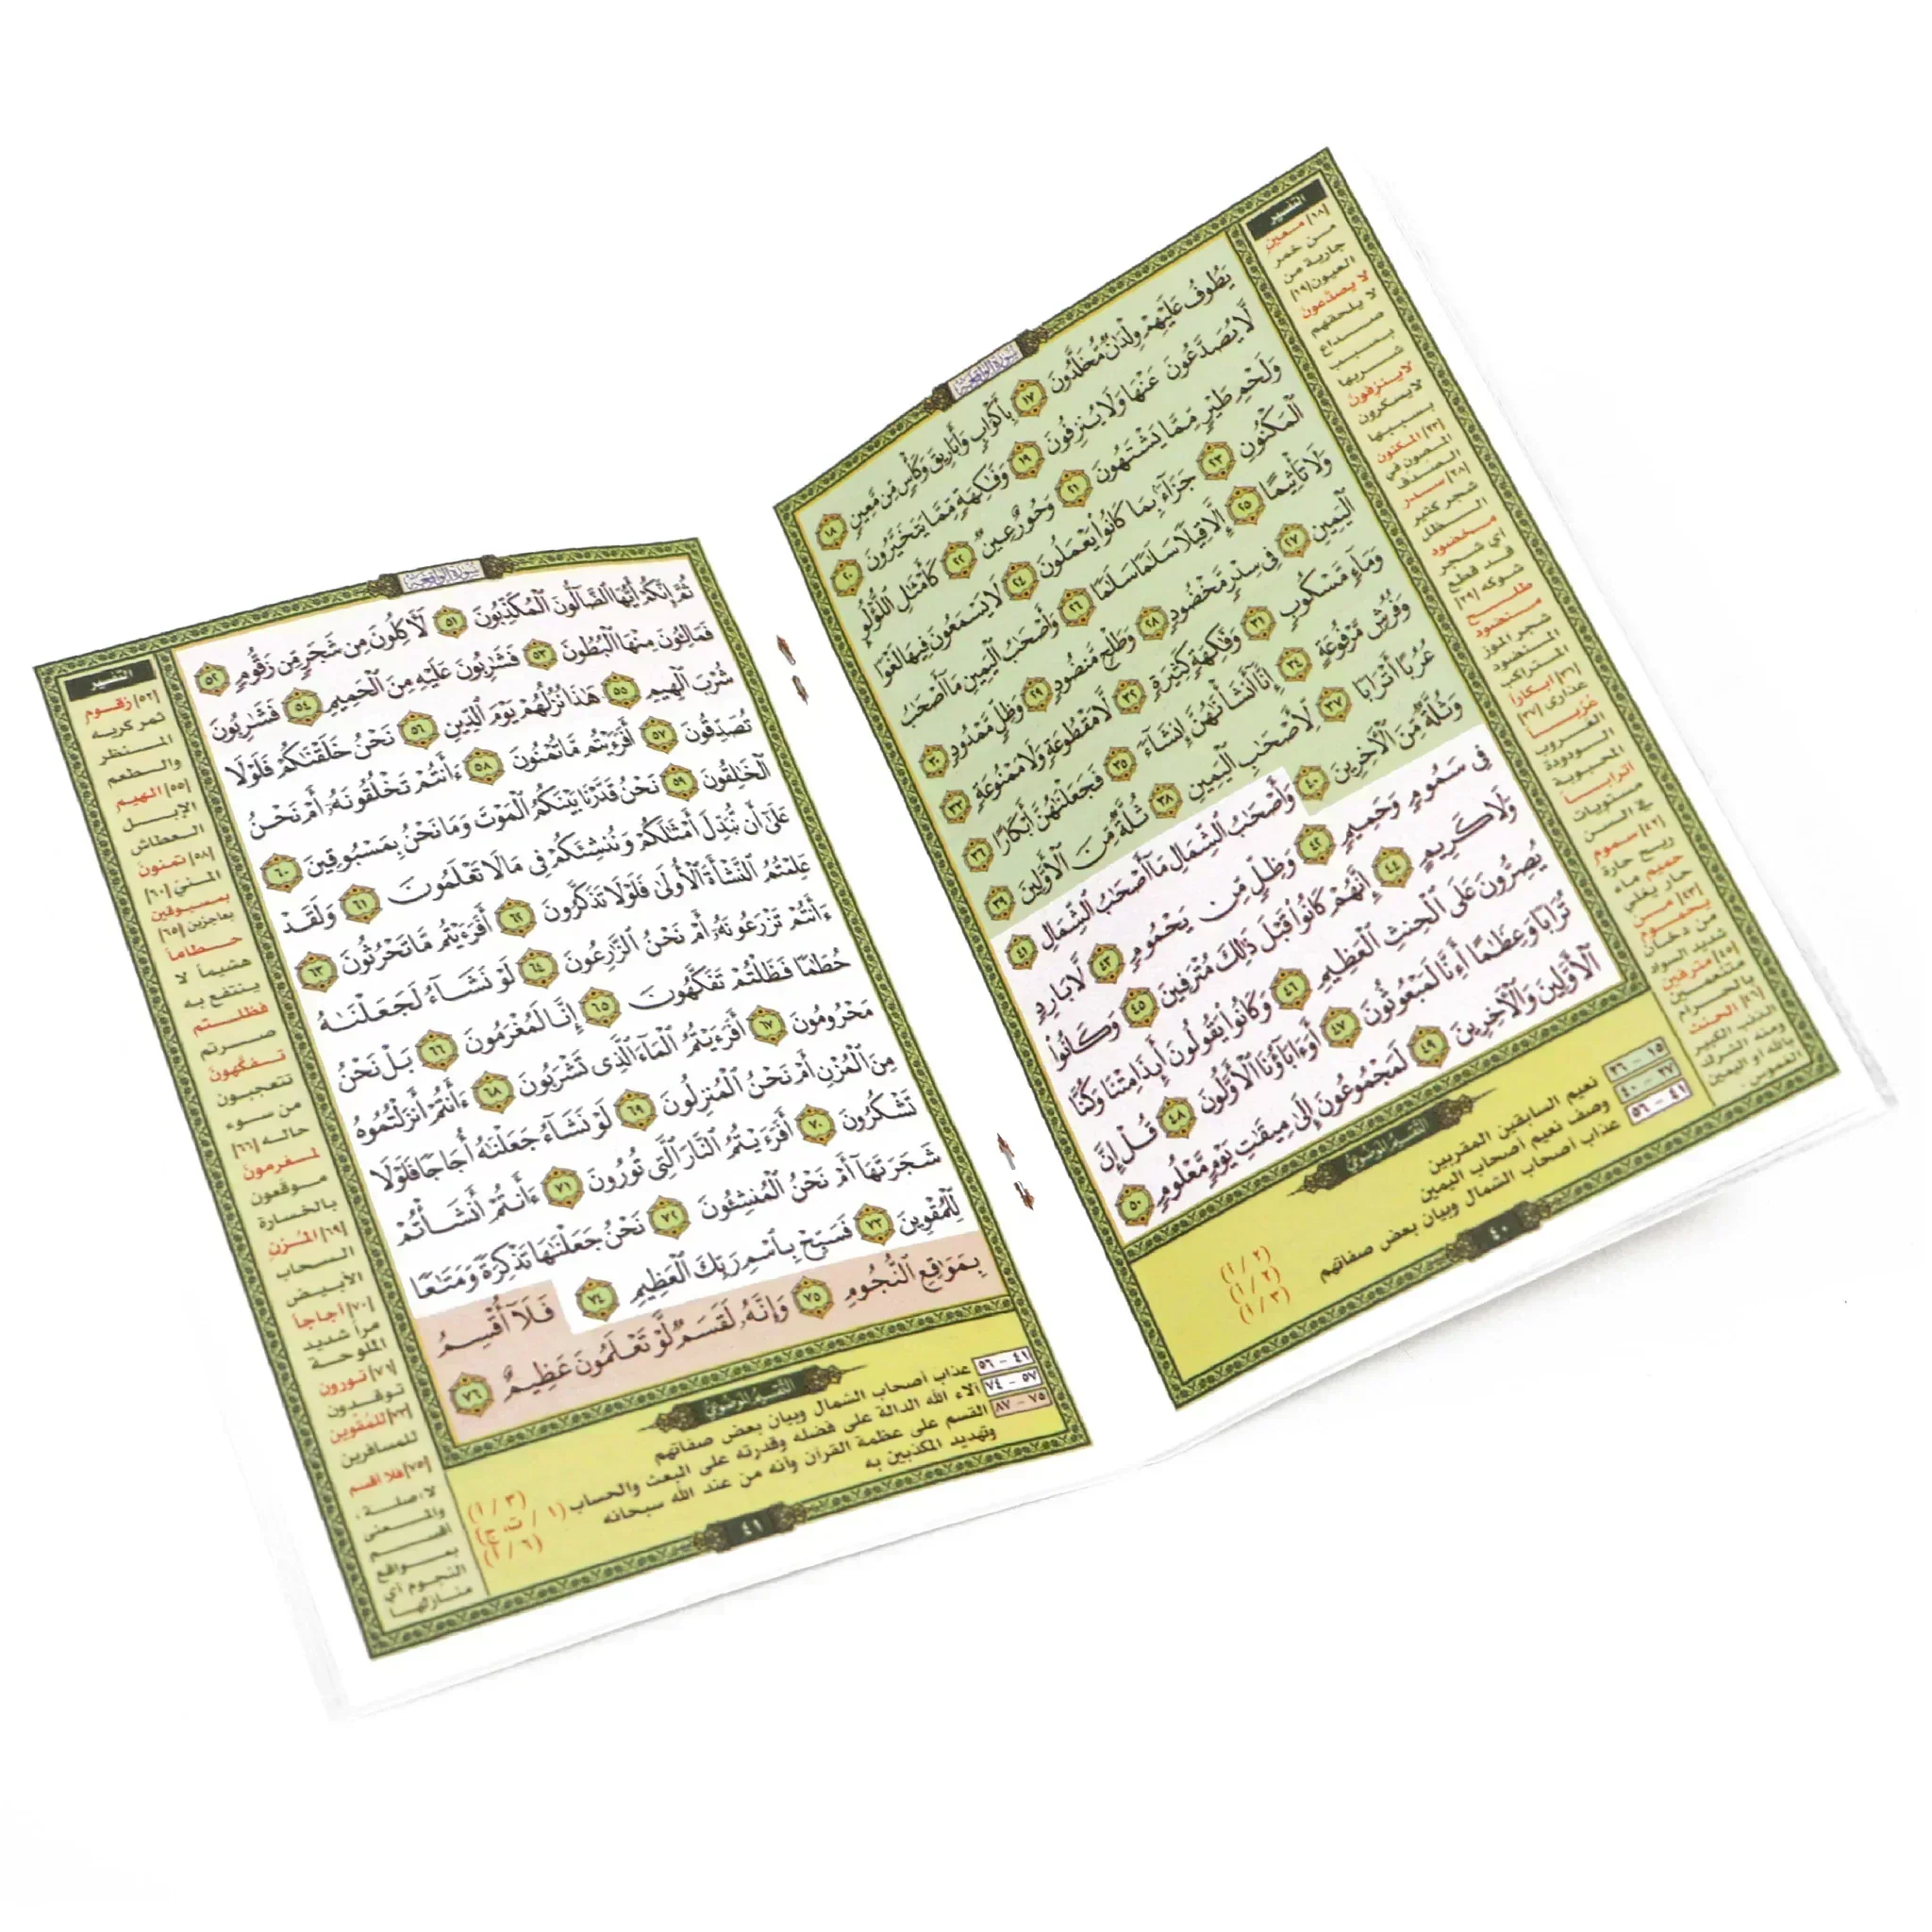 سورة الواقعة
يَطُوفُ عَلَيْهِمْ وِلْدَٰنٌ مُّخَلَّدُونَ ١٧ بِأَكْوَابٍ وَأَبَارِيقَ وَكَأْسٍ مِّن مَّعِينٍ ١٨
لَّا يُصَدَّعُونَ عَنْهَا وَلَا يُنزِفُونَ ١٩ وَفَٰكِهَةٍ مِّمَّا يَتَخَيَّرُونَ ٢٠
وَلَحْمِ طَيْرٍ مِّمَّا يَشْتَهُونَ ٢١ وَحُورٌ عِينٌ ٢٢ كَأَمْثَٰلِ ٱللُّؤْلُوِٕ
ٱلْمَكْنُونِ ٢٣ جَزَآءًۢ بِمَا كَانُوا۟ يَعْمَلُونَ ٢٤ لَا يَسْمَعُونَ فِيهَا لَغْوًا
وَلَا تَأْثِيمًا ٢٥ إِلَّا قِيلًا سَلَٰمًا سَلَٰمًا ٢٦ وَأَصْحَٰبُ ٱلْيَمِينِ مَآ أَصْحَٰبُ
ٱلْيَمِينِ ٢٧ فِى سِدْرٍ مَّخْضُودٍ ٢٨ وَطَلْحٍ مَّنضُودٍ ٢٩ وَظِلٍّ مَّمْدُودٍ ٣٠
وَمَآءٍ مَّسْكُوبٍ ٣١ وَفَٰكِهَةٍ كَثِيرَةٍ ٣٢ لَّا مَقْطُوعَةٍ وَلَا مَمْنُوعَةٍ ٣٣
وَفُرُشٍ مَّرْفُوعَةٍ ٣٤ إِنَّآ أَنشَأْنَٰهُنَّ إِنشَآءً ٣٥ فَجَعَلْنَٰهُنَّ أَبْكَارًا ٣٦
عُرُبًا أَتْرَابًا ٣٧ لِّأَصْحَٰبِ ٱلْيَمِينِ ٣٨ ثُلَّةٌ مِّنَ ٱلْأَوَّلِينَ ٣٩
وَثُلَّةٌ مِّنَ ٱلْأَخِرِينَ ٤٠ وَأَصْحَٰبُ ٱلشِّمَالِ مَآ أَصْحَٰبُ ٱلشِّمَالِ ٤١
فِى سَمُومٍ وَحَمِيمٍ ٤٢ وَظِلٍّ مِّن يَحْمُومٍ ٤٣ لَّا بَارِدٍ
وَلَا كَرِيمٍ ٤٤ إِنَّهُمْ كَانُوا۟ قَبْلَ ذَٰلِكَ مُتْرَفِينَ ٤٥ وَكَانُوا۟
يُصِرُّونَ عَلَى ٱلْحِنثِ ٱلْعَظِيمِ ٤٦ وَكَانُوا۟ يَقُولُونَ أَئِذَا مِتْنَا وَكُنَّا
تُرَابًا وَعِظَٰمًا أَءِنَّا لَمَبْعُوثُونَ ٤٧ أَوَءَابَآؤُنَا ٱلْأَوَّلُونَ ٤٨ قُلْ إِنَّ
ٱلْأَوَّلِينَ وَٱلْأَخِرِينَ ٤٩ لَمَجْمُوعُونَ إِلَىٰ مِيقَٰتِ يَوْمٍ مَّعْلُومٍ ٥٠
التفسير
[١٨] معين
من خمر
جارية من
العيون [١٩]
لا يصدعون
لا يلحقهم
صداع
بسبب
شربها
لا ينزفون
لا يسكرون
بسببها
[٢٣] المكنون
المصون في
الصدف
[٢٨] سدر
شجر كثير
الظل
مخضود
أي شجر
قد قطع
شوكه [٢٩]
طلح
منضود
شجر الموز
المنضود
المتراكب
[٣٦] أبكارا
عذارى [٣٧]
عربا
العروب
الودودة
المحبوبة
أترابا
مستويات
في السن
[٤٢] سموم
ريح حارة
حميم ماء
حار يغلي
[٤٣] من
يحموم
من دخان
شديد السواد
[٤٥] مترفين
متنعمين
بالحرام
[٤٦] الحنث
الذنب الكبير
ومنه الشرك
بالله أو اليمين
الغموس.
التفسير الموضوعي
١٥ - ٢٦ نعيم السابقين المقربين (١/٢)
٢٧ - ٤٠ وصف نعيم أصحاب اليمين (١/٢)
٤١ - ٥٦ عذاب أصحاب الشمال وبيان بعض صفاتهم (١/٣)
٤٠
سورة الواقعة
ثُمَّ إِنَّكُمْ أَيُّهَا ٱلضَّآلُّونَ ٱلْمُكَذِّبُونَ ٥١ لَأَكِلُونَ مِن شَجَرٍ مِّن زَقُّومٍ ٥٢
فَمَالِـُٔونَ مِنْهَا ٱلْبُطُونَ ٥٣ فَشَٰرِبُونَ عَلَيْهِ مِنَ ٱلْحَمِيمِ ٥٤ فَشَٰرِبُونَ
شُرْبَ ٱلْهِيمِ ٥٥ هَٰذَا نُزُلُهُمْ يَوْمَ ٱلدِّينِ ٥٦ نَحْنُ خَلَقْنَٰكُمْ فَلَوْلَا
تُصَدِّقُونَ ٥٧ أَفَرَءَيْتُم مَّا تُمْنُونَ ٥٨ ءَأَنتُمْ تَخْلُقُونَهُۥٓ أَمْ نَحْنُ
ٱلْخَٰلِقُونَ ٥٩ نَحْنُ قَدَّرْنَا بَيْنَكُمُ ٱلْمَوْتَ وَمَا نَحْنُ بِمَسْبُوقِينَ ٦٠
عَلَىٰٓ أَن نُّبَدِّلَ أَمْثَٰلَكُمْ وَنُنشِئَكُمْ فِى مَا لَا تَعْلَمُونَ ٦١ وَلَقَدْ
عَلِمْتُمُ ٱلنَّشْأَةَ ٱلْأُولَىٰ فَلَوْلَا تَذَكَّرُونَ ٦٢ أَفَرَءَيْتُم مَّا تَحْرُثُونَ ٦٣
ءَأَنتُمْ تَزْرَعُونَهُۥٓ أَمْ نَحْنُ ٱلزَّٰرِعُونَ ٦٤ لَوْ نَشَآءُ لَجَعَلْنَٰهُ
حُطَٰمًا فَظَلْتُمْ تَفَكَّهُونَ ٦٥ إِنَّا لَمُغْرَمُونَ ٦٦ بَلْ نَحْنُ
مَحْرُومُونَ ٦٧ أَفَرَءَيْتُمُ ٱلْمَآءَ ٱلَّذِى تَشْرَبُونَ ٦٨ ءَأَنتُمْ أَنزَلْتُمُوهُ
مِنَ ٱلْمُزْنِ أَمْ نَحْنُ ٱلْمُنزِلُونَ ٦٩ لَوْ نَشَآءُ جَعَلْنَٰهُ أُجَاجًا فَلَوْلَا
تَشْكُرُونَ ٧٠ أَفَرَءَيْتُمُ ٱلنَّارَ ٱلَّتِى تُورُونَ ٧١ ءَأَنتُمْ أَنشَأْتُمْ
شَجَرَتَهَآ أَمْ نَحْنُ ٱلْمُنشِـُٔونَ ٧٢ نَحْنُ جَعَلْنَٰهَا تَذْكِرَةً وَمَتَٰعًا
لِّلْمُقْوِينَ ٧٣ فَسَبِّحْ بِٱسْمِ رَبِّكَ ٱلْعَظِيمِ ٧٤ فَلَآ أُقْسِمُ
بِمَوَٰقِعِ ٱلنُّجُومِ ٧٥ وَإِنَّهُۥ لَقَسَمٌ لَّوْ تَعْلَمُونَ عَظِيمٌ ٧٦
التفسير
[٥٢] زقوم
ثمر كريه
المنظر
والطعم
[٥٥] الهيم
الإبل
العطاش
[٥٨] تمنون
المني [٦٠]
بمسبوقين
بعاجزين [٦٥]
حطاما
هشيما لا
ينتفع به
فظلتم
صرتم
تفكهون
تتعجبون
من سوء
حاله [٦٦]
لمغرمون
موقعون
بالخسارة
[٦٩] المزن
السحاب
الأبيض
[٧٠] أجاجا
مرا شديد
الملوحة
[٧١] تورون
توقدون
[٧٣] للمقوين
للمسافرين
[٧٥] فلا أقسم
لا: صلة،
والمعنى
أقسم
بمواقع
النجوم أي
منازلها
التفسير الموضوعي
٤١ - ٥٦ عذاب أصحاب الشمال وبيان بعض صفاتهم (١/٣)
٥٧ - ٧٤ آلاء الله الدالة على فضله وقدرته على البعث والحساب (١/ ت، ج)
٧٥ - ٨٧ القسم على عظمة القرآن وأنه من عند الله سبحانه (١/٦)
وتهديد المكذبين به
٤١